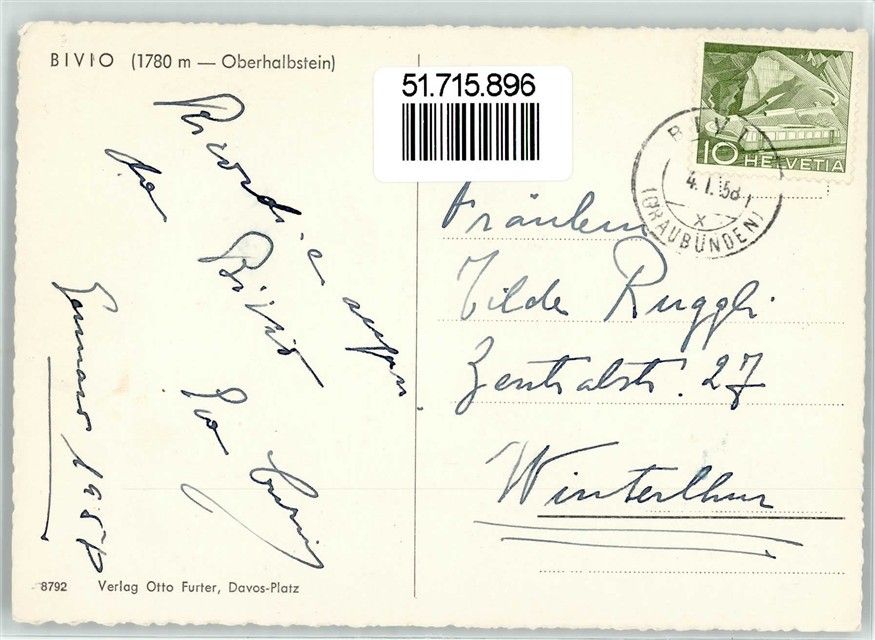 BIVIO (1780 m — Oberhalbstein)
51.715.896
10 HELVETIA
BIVIO
4.1.58
(GRAUBÜNDEN)
Ricordi e auguri
da Bivio
Gennaio 1958
Fräulein
Hilde Ruggli
Zentralstr. 27
Winterthur
8792 Verlag Otto Furter, Davos-Platz